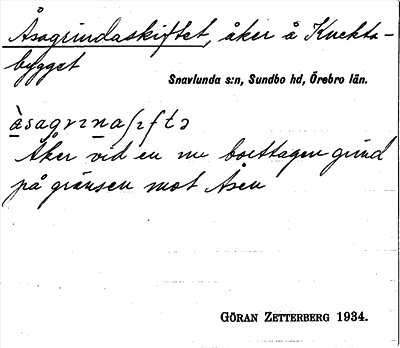 Åsagrindaskiftet, åker å Knekta-
bygget
Snavlunda s:n, Sundbo hd, Örebro län.
Åker vid en nu borttagen grind
på gränsen mot Åsen
GÖRAN ZETTERBERG 1934.